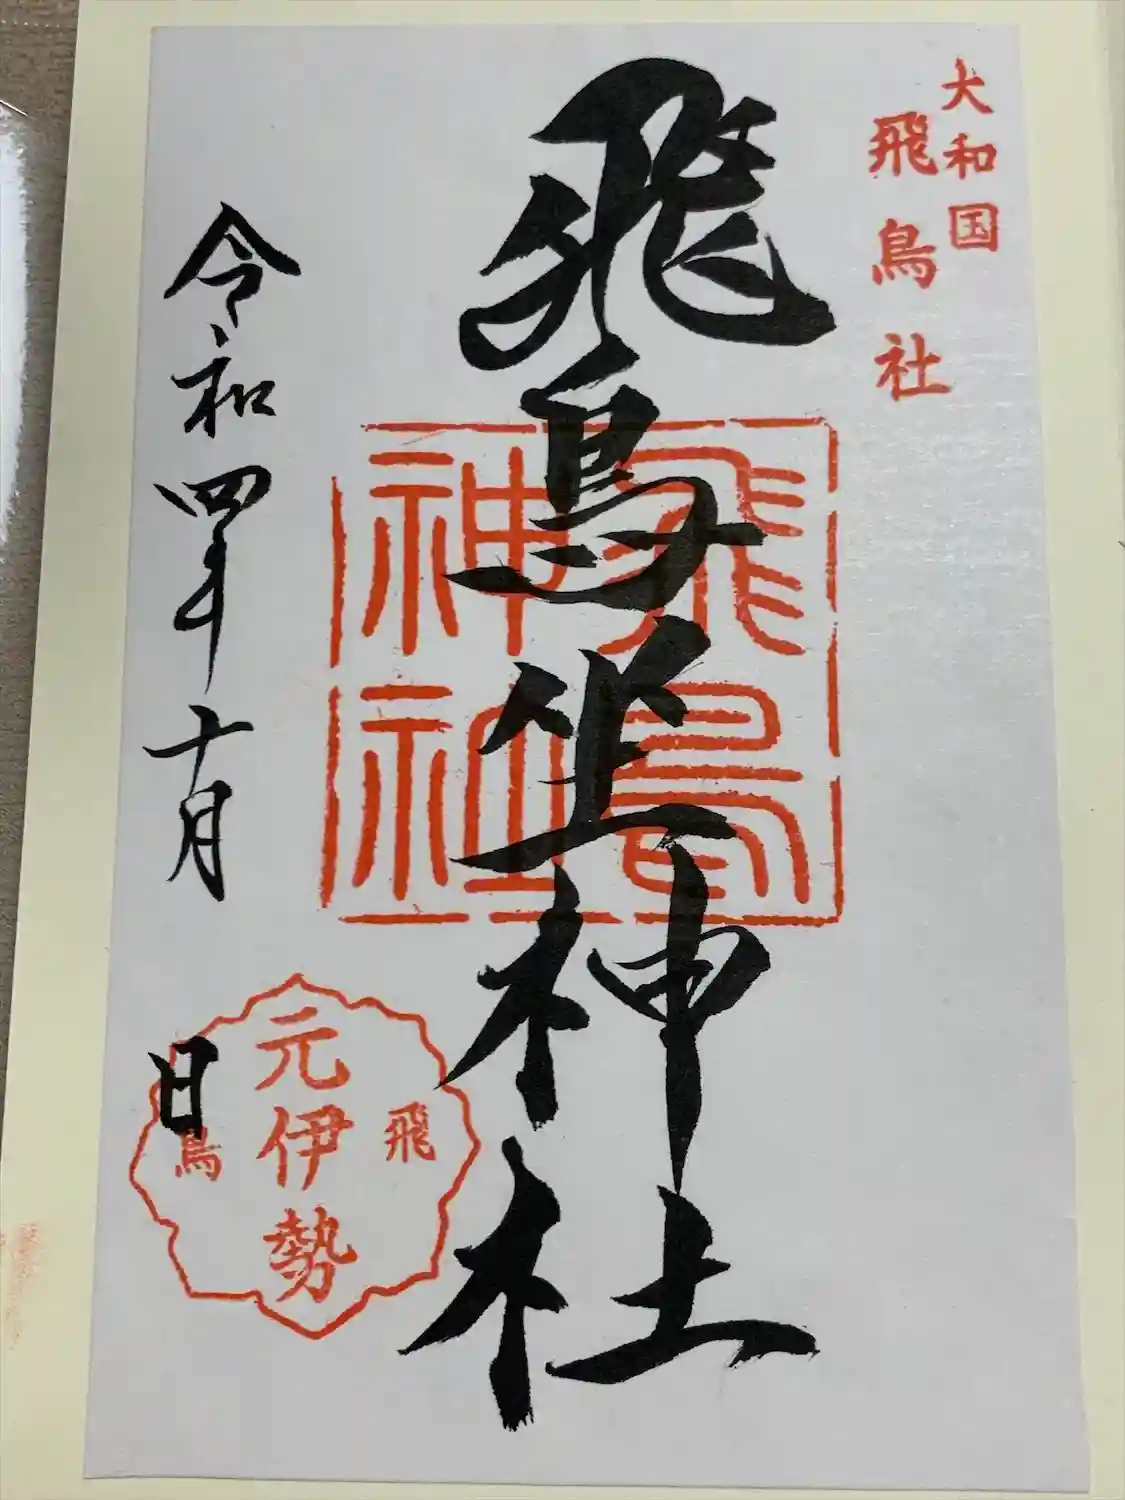 大和国
飛鳥社
飛鳥坐神社
飛鳥
神社
令和四年十月 日
飛
元伊勢
鳥